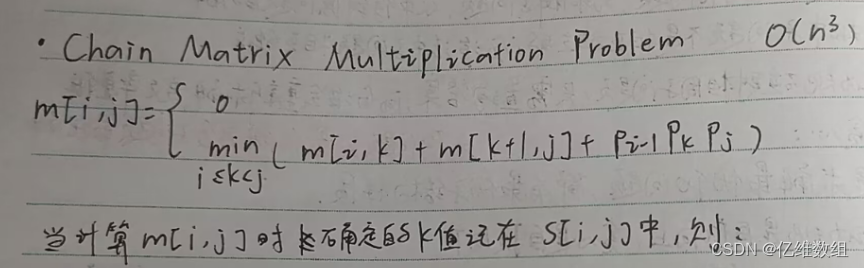 · Chain Matrix Multiplication Problem O(n³)
m[i,j]={ 0
min ( m[i,k] + m[k+1,j] + Pi-1 Pk Pj )
i≤k<j
当计算 m[i,j] 时 确定的 k值记在 S[i,j] 中,则:
CSDN @亿维数组